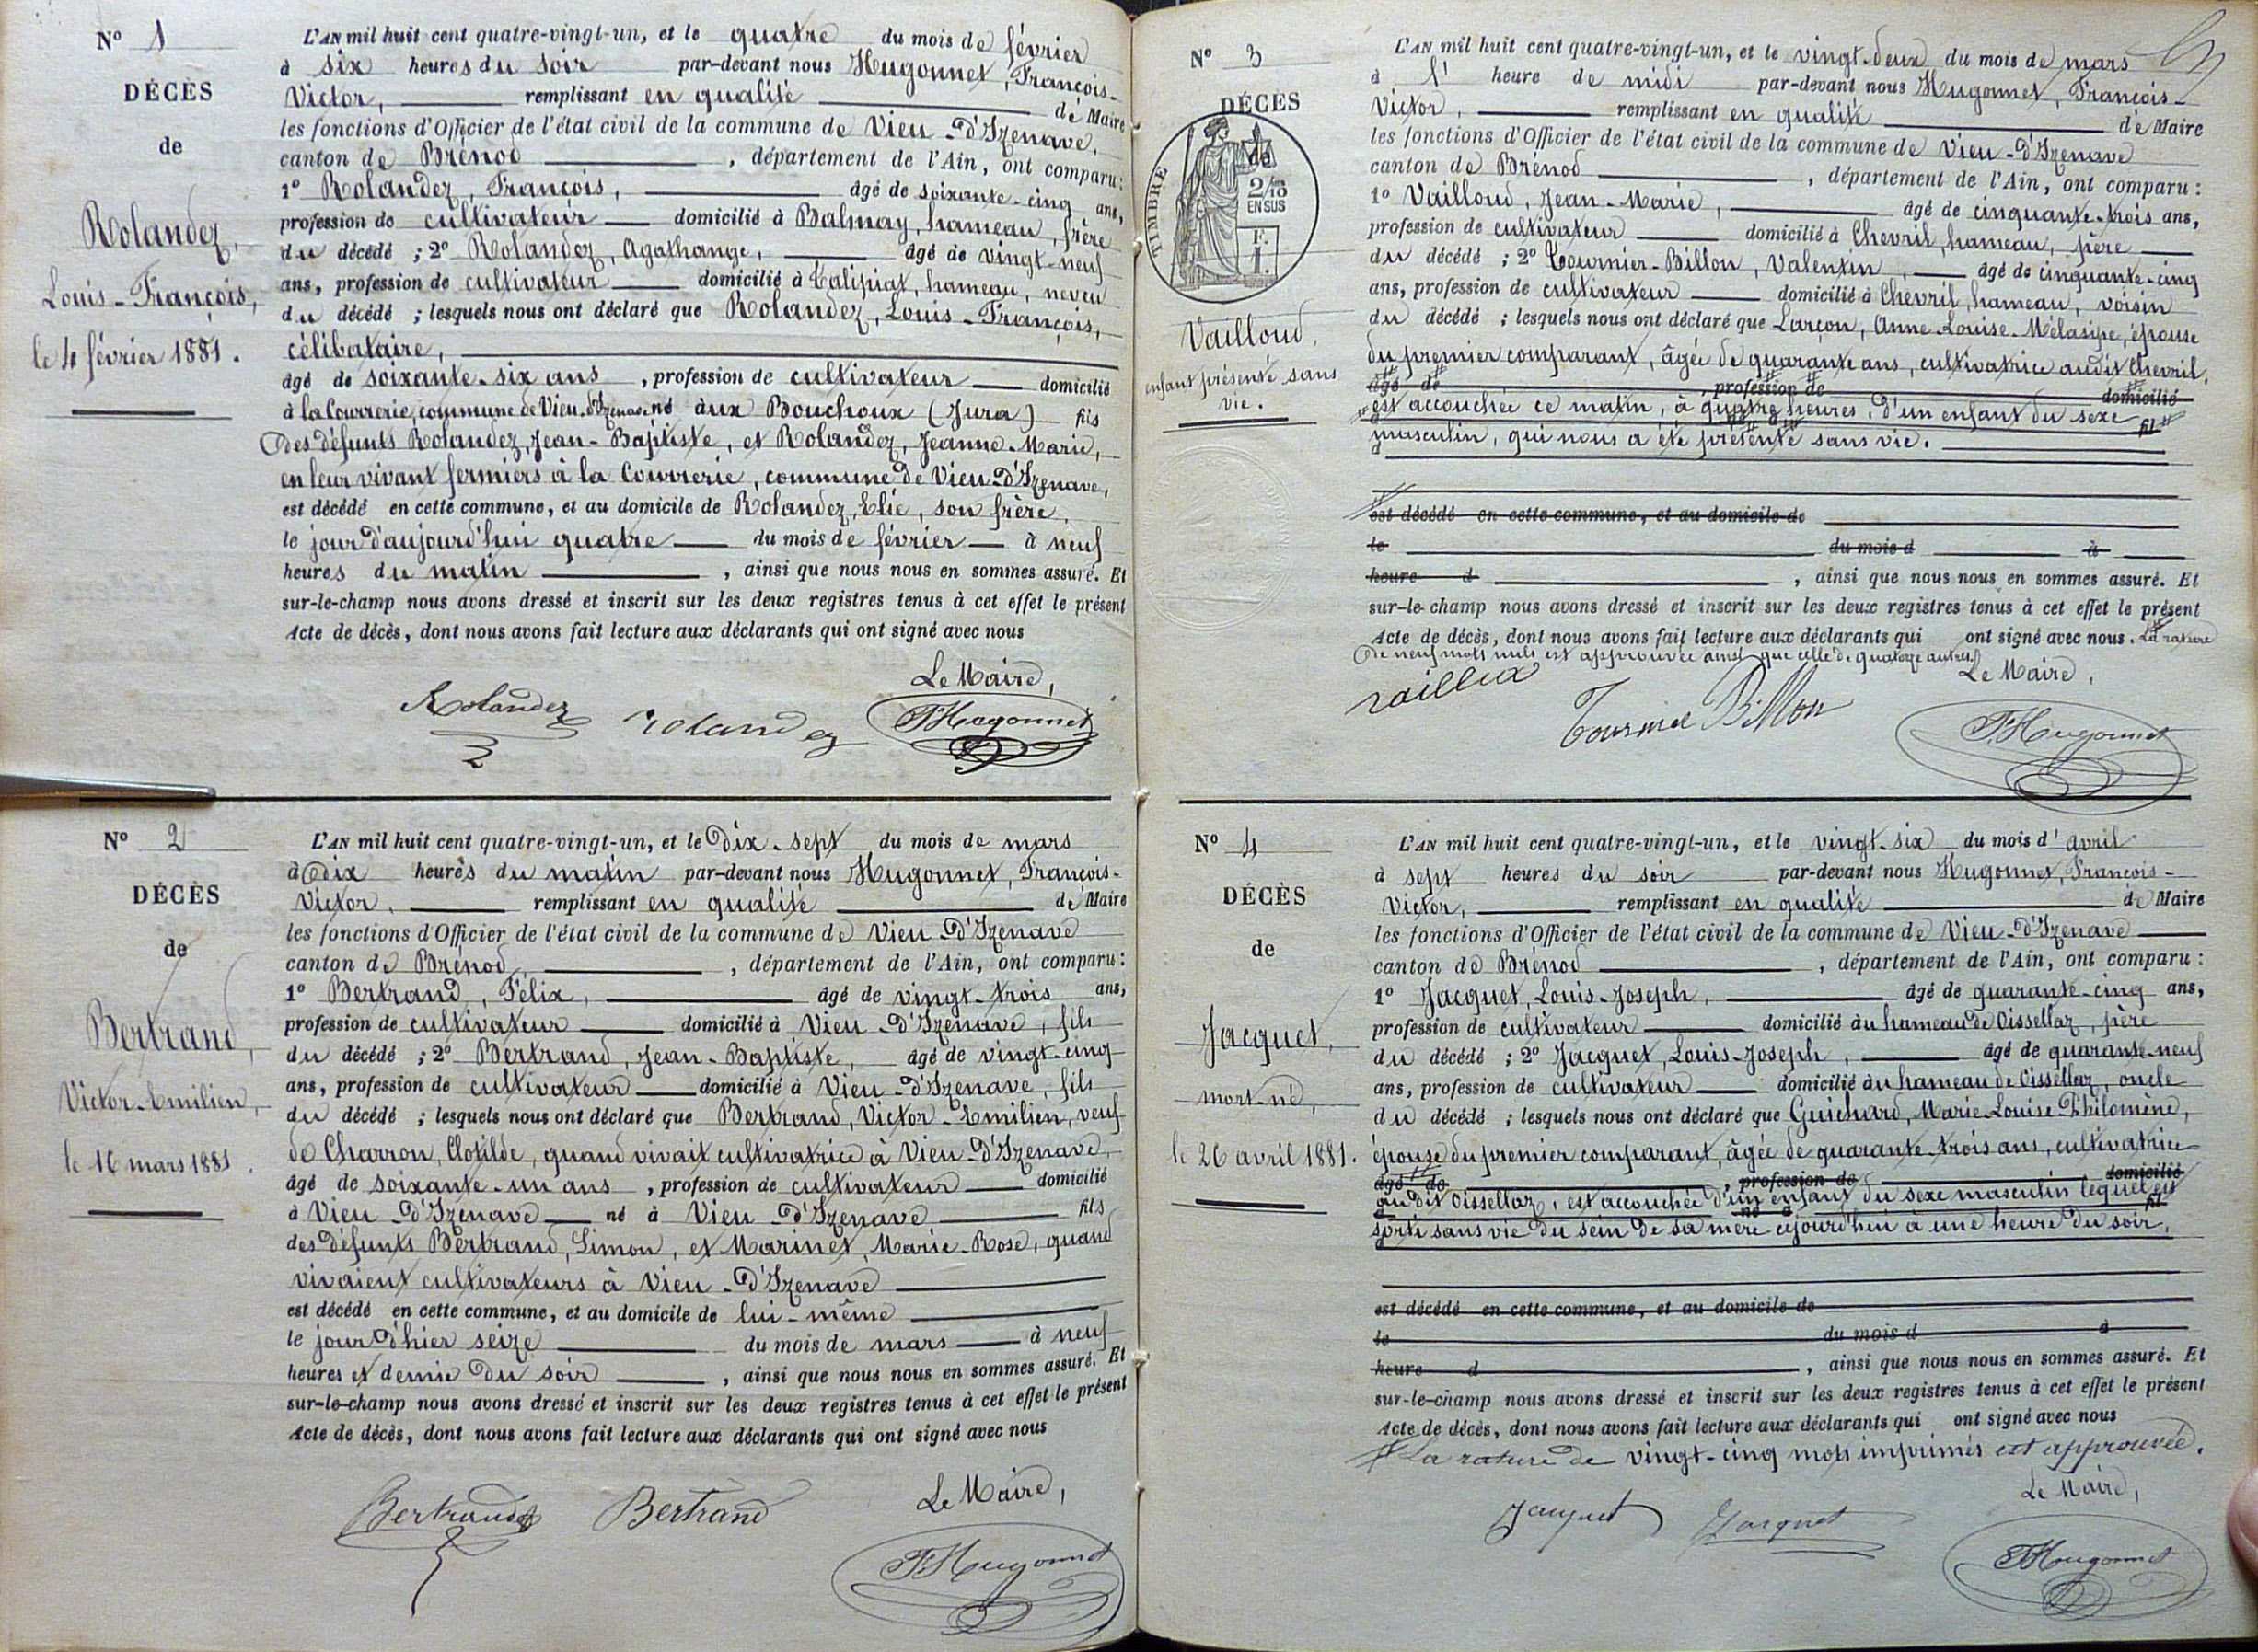 N° 1
DÉCÈS
de
Rolandez,
Louis-François,
le 4 février 1881.
L'AN mil huit cent quatre-vingt-un, et le quatre du mois de février
à six heures du soir par-devant nous Hugonnet, François-
Victor, remplissant en qualité de Maire
les fonctions d'Officier de l'état civil de la commune de Vieu-d'Izenave,
canton de Brénod, département de l'Ain, ont comparu:
1° Rolandez, François, âgé de soixante-cinq ans,
profession de cultivateur domicilié à Balmay, hameau, frère
du décédé ; 2° Rolandez, Agathange, âgé de vingt-neuf
ans, profession de cultivateur domicilié à Talipiat, hameau, neveu
du décédé ; lesquels nous ont déclaré que Rolandez, Louis-François,
célibataire,
âgé de soixante-six ans, profession de cultivateur domicilié
à la Courrerie, commune de Vieu-d'Izenave né aux Bouchoux (Jura) fils
des défunts Rolandez, Jean-Baptiste, et Rolandez, Jeanne-Marie,
en leur vivant fermiers à la Courrerie, commune de Vieu-d'Izenave,
est décédé en cette commune, et au domicile de Rolandez, Elie, son frère,
le jour d'aujourd'hui quatre du mois de février à neuf
heures du matin, ainsi que nous nous en sommes assuré. Et
sur-le-champ nous avons dressé et inscrit sur les deux registres tenus à cet effet le présent
Acte de décès, dont nous avons fait lecture aux déclarants qui ont signé avec nous
Le Maire,
Rolandez Rolandez FHugonnet
N° 2
DÉCÈS
de
Bertrand,
Victor-Emilien,
le 16 mars 1881.
L'AN mil huit cent quatre-vingt-un, et le dix-sept du mois de mars
à dix heures du matin par-devant nous Hugonnet, François-
Victor, remplissant en qualité de Maire
les fonctions d'Officier de l'état civil de la commune de Vieu-d'Izenave
canton de Brénod, département de l'Ain, ont comparu:
1° Bertrand, Félix, âgé de vingt-trois ans,
profession de cultivateur domicilié à Vieu-d'Izenave, fils
du décédé ; 2° Bertrand, Jean-Baptiste, âgé de vingt-cinq
ans, profession de cultivateur domicilié à Vieu-d'Izenave, fils
du décédé ; lesquels nous ont déclaré que Bertrand, Victor-Emilien, veuf
de Charron, Clotilde, quand vivait cultivatrice à Vieu-d'Izenave,
âgé de soixante-un ans, profession de cultivateur domicilié
à Vieu-d'Izenave né à Vieu-d'Izenave fils
des défunts Bertrand, Simon, et Marinet, Marie-Rose, quand
vivaient cultivateurs à Vieu-d'Izenave
est décédé en cette commune, et au domicile de lui-même
le jour d'hier seize du mois de mars à neuf
heures et demie du soir, ainsi que nous nous en sommes assuré. Et
sur-le-champ nous avons dressé et inscrit sur les deux registres tenus à cet effet le présent
Acte de décès, dont nous avons fait lecture aux déclarants qui ont signé avec nous
Le Maire,
Bertrand Bertrand FHugonnet
N° 3
DÉCÈS
de
TIMBRE
2/10
EN SUS
F.
1.
Vailloud,
enfant présenté sans
vie.
L'AN mil huit cent quatre-vingt-un, et le vingt-deux du mois de mars
à l' heure de midi par-devant nous Hugonnet, François-
Victor, remplissant en qualité de Maire
les fonctions d'Officier de l'état civil de la commune de Vieu-d'Izenave
canton de Brénod, département de l'Ain, ont comparu:
1° Vailloud, Jean-Marie, âgé de cinquante-trois ans,
profession de cultivateur domicilié à Chevril, hameau, père
du décédé ; 2° Tournier-Billon, Valentin, âgé de cinquante-cinq
ans, profession de cultivateur domicilié à Chevril, hameau, voisin
du décédé ; lesquels nous ont déclaré que Larçon, Anne-Louise-Mélasipe, épouse
du premier comparant, âgée de quarante ans, cultivatrice audit Chevril,
âgé de, profession de domicilié
est accouchée ce matin, à quatre heures, d'un enfant du sexe
né à fil
masculin, qui nous a été présenté sans vie.
est décédé en cette commune, et au domicile de
le du mois d à
heure d, ainsi que nous nous en sommes assuré. Et
sur-le-champ nous avons dressé et inscrit sur les deux registres tenus à cet effet le présent
Acte de décès, dont nous avons fait lecture aux déclarants qui ont signé avec nous. La rature
de neuf mots nuls est approuvée ainsi que celle de quatorze autres.
Le Maire,
Tournier Billon FHugonnet
N° 4
DÉCÈS
de
Jacquet,
mort-né,
le 26 avril 1881.
L'AN mil huit cent quatre-vingt-un, et le vingt-six du mois d'avril
à sept heures du soir par-devant nous Hugonnet, François-
Victor, remplissant en qualité de Maire
les fonctions d'Officier de l'état civil de la commune de Vieu-d'Izenave
canton de Brénod, département de l'Ain, ont comparu:
1° Jacquet, Louis-Joseph, âgé de quarante-cinq ans,
profession de cultivateur domicilié au hameau de Oissellaz, père
du décédé ; 2° Jacquet, Louis-Joseph, âgé de quarante-neuf
ans, profession de cultivateur domicilié au hameau de Oissellaz, oncle
du décédé ; lesquels nous ont déclaré que Guichard, Marie Louise Philomène,
épouse du premier comparant, âgée de quarante-trois ans, cultivatrice
âgé de, profession de domicilié
au dit Oissellaz, est accouchée d'un enfant du sexe masculin lequel est
à né à fil
sorti sans vie du sein de sa mère cejourd'hui à une heure du soir.
est décédé en cette commune, et au domicile de
le du mois d à
heure d, ainsi que nous nous en sommes assuré. Et
sur-le-champ nous avons dressé et inscrit sur les deux registres tenus à cet effet le présent
Acte de décès, dont nous avons fait lecture aux déclarants qui ont signé avec nous
La rature de vingt-cinq mots imprimés est approuvée.
Le Maire,
Jacquet Jacquet FHugonnet